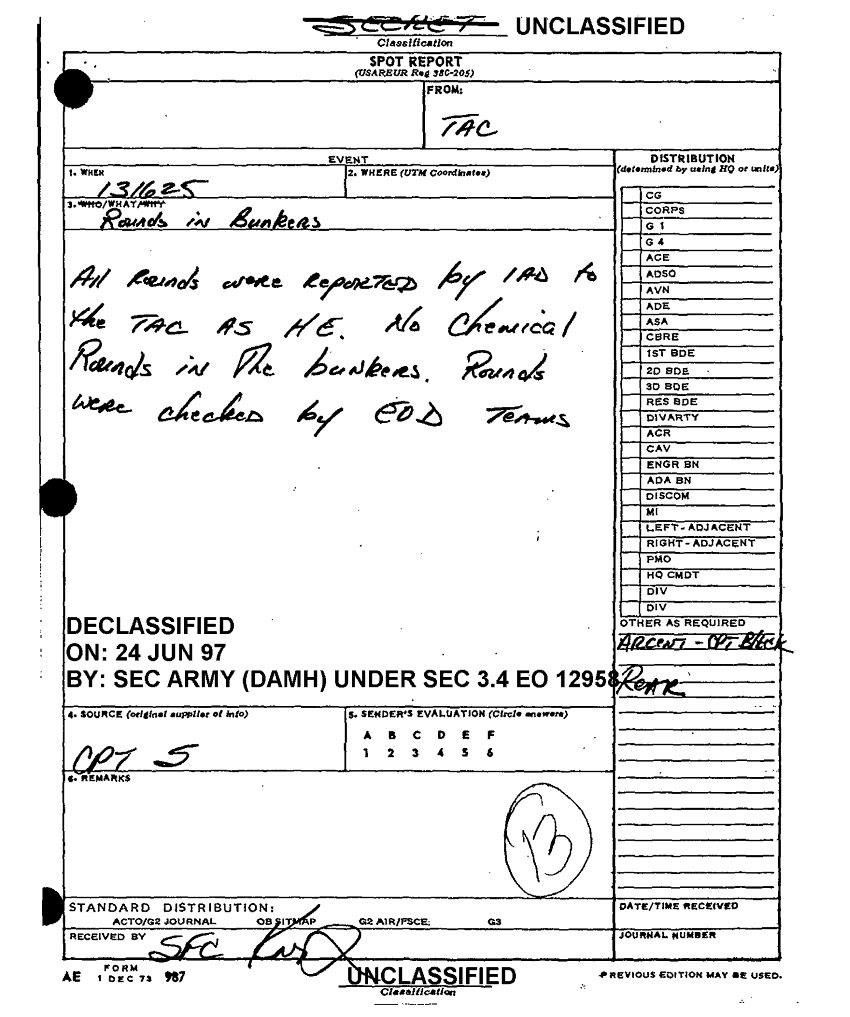 SECRET UNCLASSIFIED
Classification
SPOT REPORT
(USAREUR Reg 380-205)
FROM:
TAC
EVENT
1. WHEN
131625
2. WHERE (UTM Coordinates)
3. WHO/WHAT/WHY
Rounds in Bunkers
All Rounds were REPORTED by 1AD to
the TAC AS HE. No Chemical
Rounds in The bunkers. Rounds
were checked by EOD Teams
DISTRIBUTION
(determined by using HQ or units)
CG
CORPS
G 1
G 4
ACE
ADSO
AVN
ADE
ASA
CBRE
1ST BDE
2D BDE
3D BDE
RES BDE
DIVARTY
ACR
CAV
ENGR BN
ADA BN
DISCOM
MI
LEFT - ADJACENT
RIGHT - ADJACENT
PMO
HQ CMDT
DIV
DIV
OTHER AS REQUIRED
ARCENT - CPT Black
REAR
DECLASSIFIED
ON: 24 JUN 97
BY: SEC ARMY (DAMH) UNDER SEC 3.4 EO 12958
4. SOURCE (original supplier of info)
CPT S
5. SENDER'S EVALUATION (Circle answers)
A B C D E F
1 2 3 4 5 6
6. REMARKS
13
STANDARD DISTRIBUTION:
ACTO/G2 JOURNAL OB SITMAP G2 AIR/FSCE; G3
RECEIVED BY SFC
DATE/TIME RECEIVED
JOURNAL NUMBER
AE FORM 1 DEC 73 987
UNCLASSIFIED
Classification
PREVIOUS EDITION MAY BE USED.